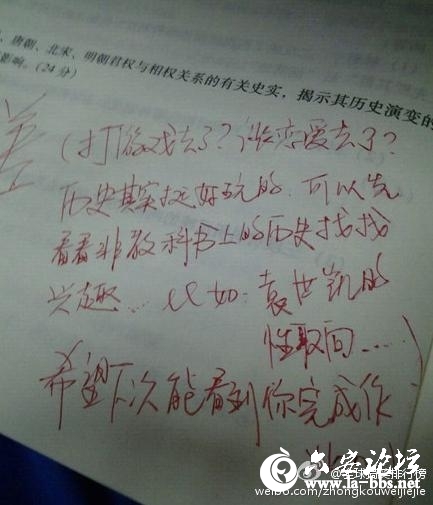 、唐朝、北宋、明朝君权与相权关系的有关史实,揭示其历史演变的
影响。(24分)
差
(打游戏去了?谈恋爱去了?
历史其实挺好玩的.可以先
看看非教科书上的历史找找
兴趣...比如:袁世凯的
性取向.....)
希望下次能看到你完成作
六安论坛
www.la-bbs.net
weibo.com/zhongkouweijiejie